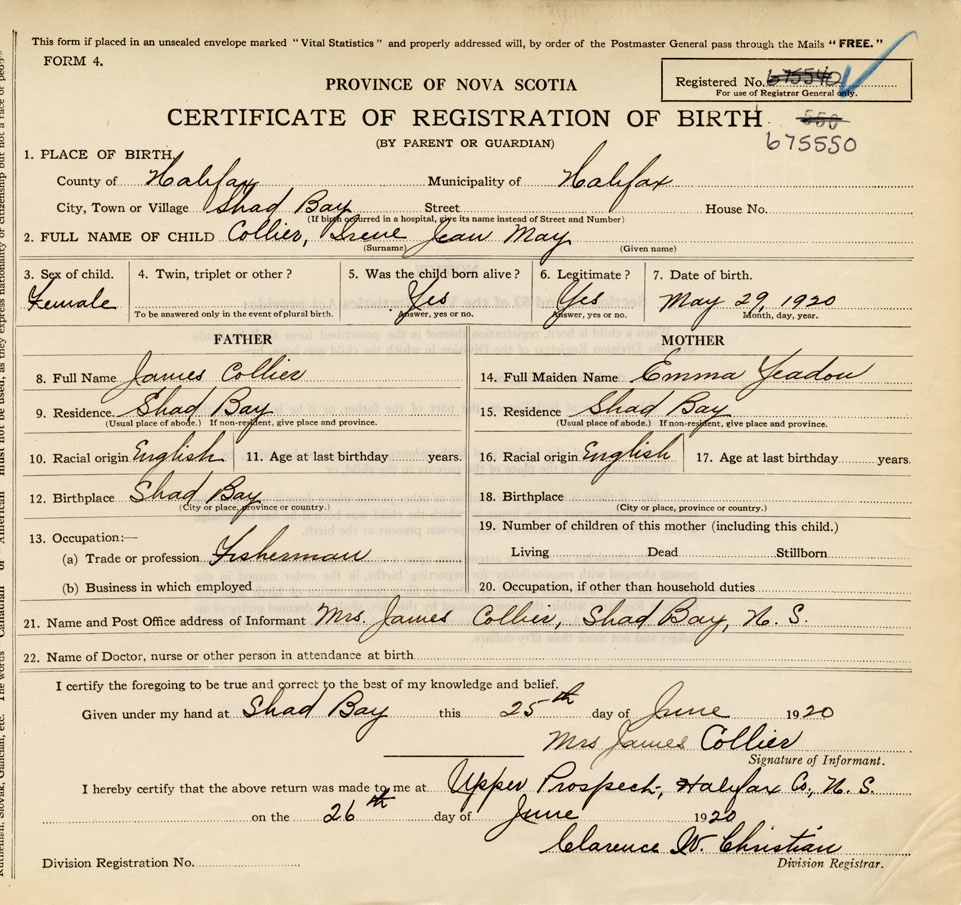 This form if placed in an unsealed envelope marked "Vital Statistics" and properly addressed will, by order of the Postmaster General pass through the Mails "FREE."
FORM 4.
Registered No. 675540
For use of Registrar General only.
PROVINCE OF NOVA SCOTIA
CERTIFICATE OF REGISTRATION OF BIRTH 550
(BY PARENT OR GUARDIAN) 675550
1. PLACE OF BIRTH,
County of Halifax Municipality of Halifax
City, Town or Village Shad Bay Street House No.
(If birth occurred in a hospital, give its name instead of Street and Number)
2. FULL NAME OF CHILD Collier, Irene Jean May
(Surname) (Given name)
3. Sex of child. 4. Twin, triplet or other? 5. Was the child born alive? 6. Legitimate? 7. Date of birth.
Female Yes Yes May 29, 1920
To be answered only in the event of plural birth. Answer, yes or no. Answer, yes or no. Month, day, year.
FATHER
8. Full Name James Collier
9. Residence. Shad Bay
(Usual place of abode.) If non-resident, give place and province.
10. Racial origin English 11. Age at last birthday years.
12. Birthplace Shad Bay
(City or place, province or country.)
13. Occupation:—
(a) Trade or profession Fisherman
(b) Business in which employed
MOTHER
14. Full Maiden Name Emma Yeadon
15. Residence Shad Bay
(Usual place of abode.) If non-resident, give place and province.
16. Racial origin English 17. Age at last birthday years.
18. Birthplace
(City or place, province or country.)
19. Number of children of this mother (including this child.)
Living Dead Stillborn
20. Occupation, if other than household duties
21. Name and Post Office address of Informant Mrs. James Collier, Shad Bay, N. S.
22. Name of Doctor, nurse or other person in attendance at birth
I certify the foregoing to be true and correct to the best of my knowledge and belief.
Given under my hand at Shad Bay this 25th day of June 1920
Mrs James Collier
Signature of Informant.
I hereby certify that the above return was made to me at Upper Prospect, Halifax Co., N. S.
on the 26th day of June 1920
Clarence W. Christian
Division Registration No. Division Registrar.